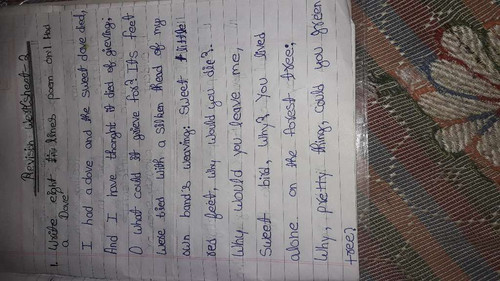 Revision Worksheet-2
1. Write eight lines poem on I had
a Dove
I had a dove and the sweet dove died,
And I have thought it died of grieving:
O what could it grieve for? Its feet
were tied with a silken thead of my
own band's weaving: Sweet little
res feet, why would you die?
Why would you leave me,
Sweet bird, Why? You lived
alone on the forest tree:
Why, pretty thing, could you green
tree?